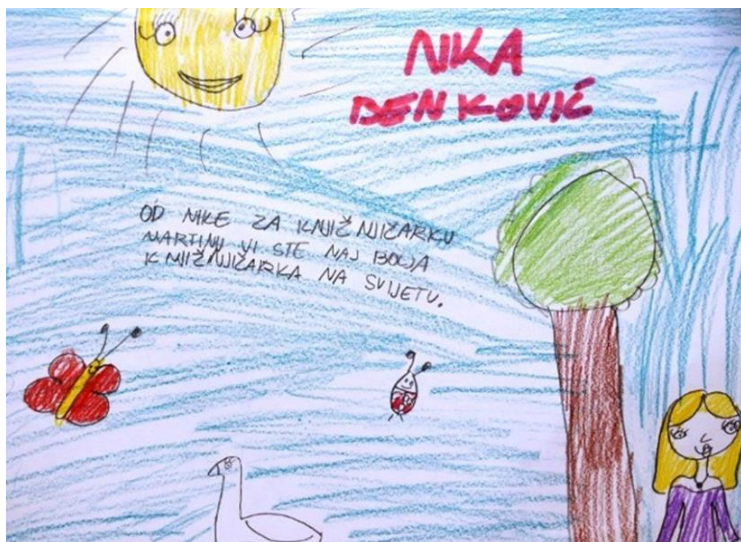 NIKA
DENKOVIĆ
OD NIKE ZA KNJIŽNJIČARKU
MARTINU VI STE NAJ BOLJA
KNJIŽNJIČARKA NA SVIJETU.